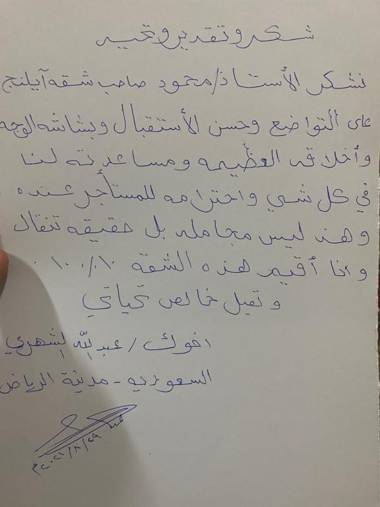 شكر وتقدير وتحيه
نشكر الأستاذ/محمود صاحب شقه آيلنج
على التواضع وحسن الأستقبال وبشاشه الوجه
وأخلاقه العظيمه ومساعدته لنا
في كل شي واحترامه للمستأجر عنده
وهذ ليس مجامله بل حقيقه تقال
وانا أقيم هذه الشقة ١٠٠٪١٠
وتقبل خالص تحياتي
اخوك/عبدالله الشهري
السعوديه - مدينة الرياض